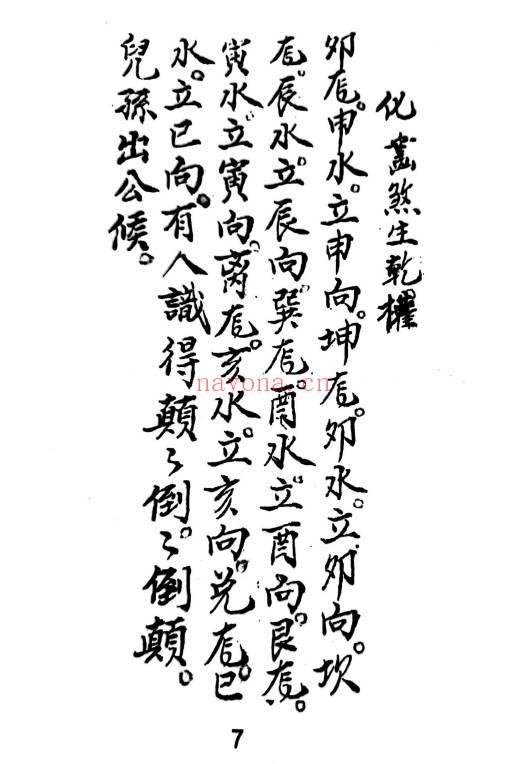 化煞生乾權
夘龙。申水。立申向。坤龙。夘水。立夘向。坎
龙。辰水。立辰向。巽龙。酉水。立酉向。艮龙。
寅水。立寅向。离龙。亥水。立亥向。兑龙。巳
水。立巳向。有人識得顛々倒。々倒顛。
兒孫出公候。
nayona.cn
7